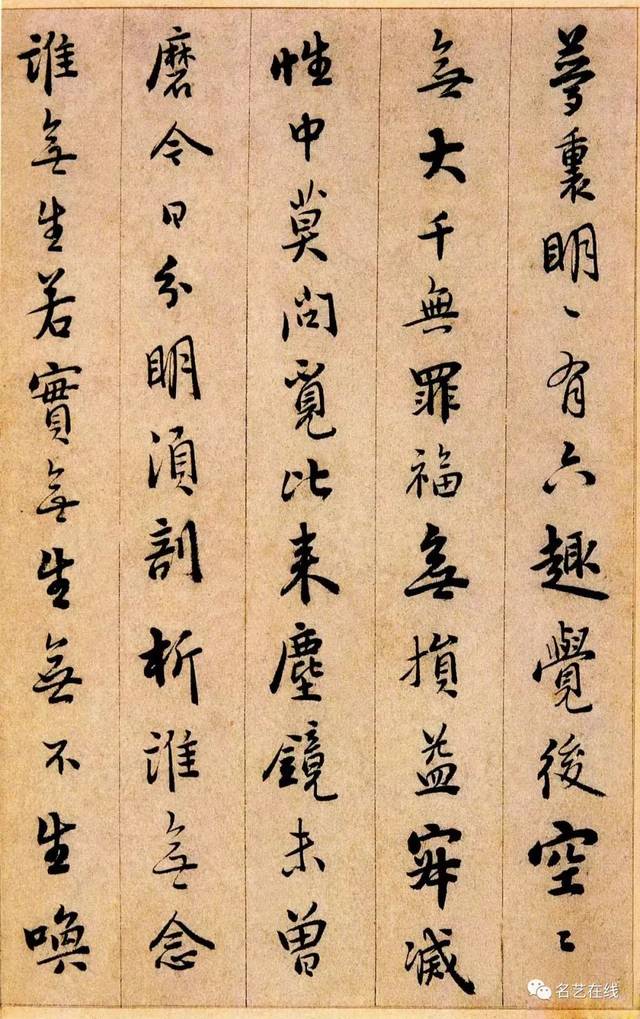 夢裏明〻有六趣覺後空〻
無大千無罪福無損益寂滅
性中莫問覓比来塵鏡未曾
磨今日分明須剖析誰無念
誰無生若實無生無不生喚
名艺在线